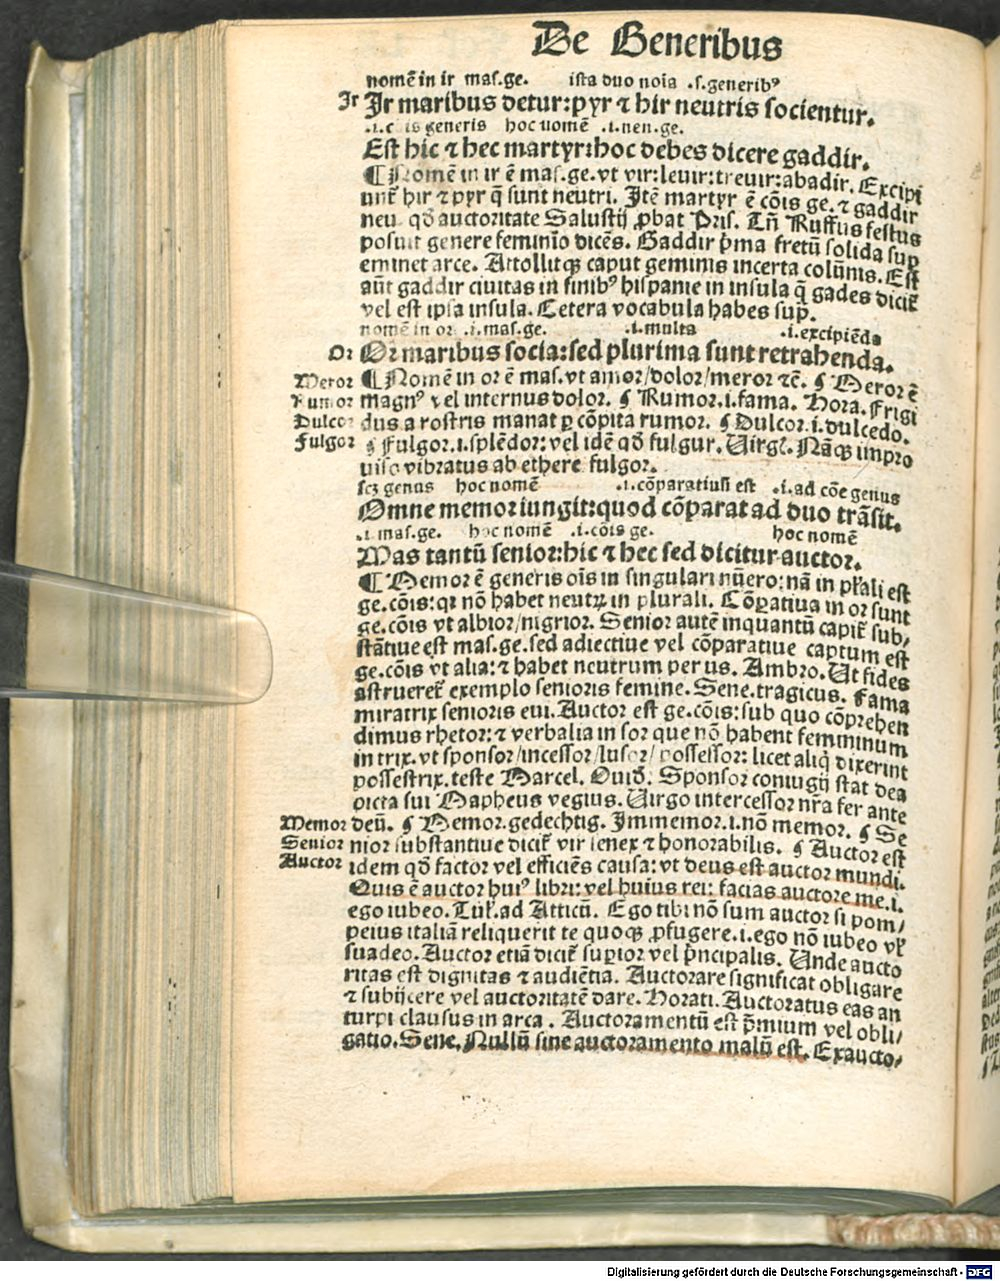 De Generibus
nomē in ir mas.ge. ista duo noīa .s.generibꝰ
Ir Ir maribus detur:pyr ⁊ hir neutris socientur.
.i.c is generis hoc nomē .i.neu.ge.
Est hic ⁊ hec martyr:hoc debes dicere gaddir.
¶ Nomē in ir ē mas.ge.vt vir:levir:treuir:abadir. Excipi
unt᷑ hir ⁊ pyr q̄ sunt neutri. Itē martyr ē cōis ge.⁊ gaddir
neu. qḋ auctoritate Salustij ꝓbat Pris. Tn̄ Ruffus festus
posuit genere feminīo dicēs. Gaddir p̄ma fretū solida sup
eminet arce. Attollitqꝫ caput geminis incerta colūnis. Est
aūt gaddir ciuitas in finibꝰ hispanie in insula q̄ gades dicit᷑
vel est ipsa insula. Cetera vocabula habes sup̄.
nomē in or .i.mas.ge. .i.multa .i.excipiēda
Or Or maribus socia:sed plurima sunt retrahenda.
Meror ¶ Nomē in or ē mas.vt amor/dolor/meror ⁊c̄. ¶ Meror ē
Rumor magnꝰ vel internus dolor. ¶ Rumor.i.fama. Hora. Frigi
Dulcor dus a rostris manat ꝑ cōpita rumor. ¶ Dulcor.i.dulcedo.
Fulgor ¶ Fulgor.i.splēdor:vel idē qḋ fulgur. Uirgi. Nāqꝫ impro
uiso vibratus ab ethere fulgor.
scꝫ genus hoc nomē .i.cōparatiuū est .i.ad cōe genus
Omne memor iungit:quod cōparat ad duo trāsit.
.i.mas.ge. hoc nomē .i.cōis ge. hoc nomē
Mas tantū senior:hic ⁊ hec sed dicitur auctor.
¶ Memor ē generis oīs in singulari nūero:nā in pl᷑ali est
ge.cōis:qꝛ nō habet neutꝝ in plurali. Cōꝑatiua in or sunt
ge.cōis vt albior/nigrior. Senior autē inquantū capit᷑ sub/
stātiue est mas.ge.sed adiectiue vel cōparatiue captum est
ge.cōis vt alia:⁊ habet neutrum per us. Ambro. Ut fides
astrueret᷑ exemplo senioris femine. Sene.tragicus. Fama
miratrix senioris eui. Auctor est ge.cōis:sub quo cōprehen
dimus rhetor:⁊ verbalia in sor que nō habent femininum
in trix.vt sponsor/incessor/lusor/possessor: licet aliq̄ dixerint
possestrix.teste Marcel. Ouid. Sponsor coniugij stat dea
picta sui Mapheus vegius. Uirgo intercessor nr̄a fer ante
Memor deū. ¶ Memor.gedechtig. Immemor.i.nō memor. ¶ Se
Senior nior substantiue dicit᷑ vir senex ⁊ honorabilis. ¶ Auctor est
Auctor idem qḋ factor vel efficiēs causa:vt deus est auctor mundi.
Quis ē auctor huiꝰ libri:vel huius rei: facias auctore me.i.
ego iubeo. Tul᷑.ad Atticū. Ego tibi nō sum auctor si pom/
peius italiā reliquerit te quoqꝫ ꝓfugere.i.ego nō iubeo vl᷑
suadeo. Auctor etiā dicit᷑ suꝑior vel p̄ncipalis. Unde aucto
ritas est dignitas ⁊ audiētia. Auctorare significat obligare
⁊ subijcere vel auctoritatē dare. Horati. Auctoratus eas an
turpi clausus in arca. Auctoramentū est p̄mium vel obli/
gatio. Sene. Nullū sine auctoramento malū est. Exaucto/
Digitalisierung gefördert durch die Deutsche Forschungsgemeinschaft - DFG